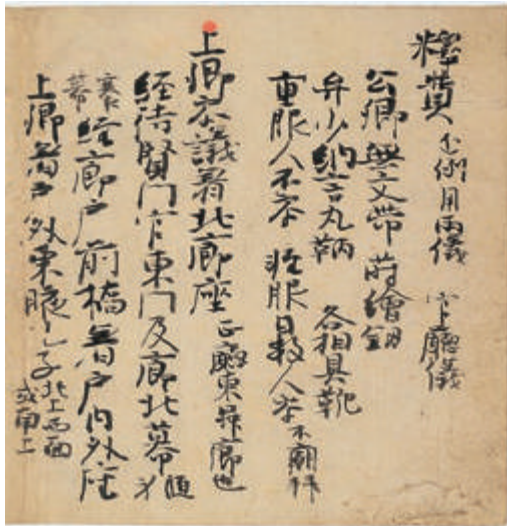 釋奠 近例用雨儀 官廳儀
公卿無文帯 蒔繪釼
弁少納言丸鞆 各相具靴
重服人不参 軽服日數人参不廟拝
上卿参議着北廊座 正廳東舁廊也
経待賢門官東門及廊北幕 随
褰幕経廊戸前橋着戸内外座
上卿着戸外東腋 北上西面
或南上